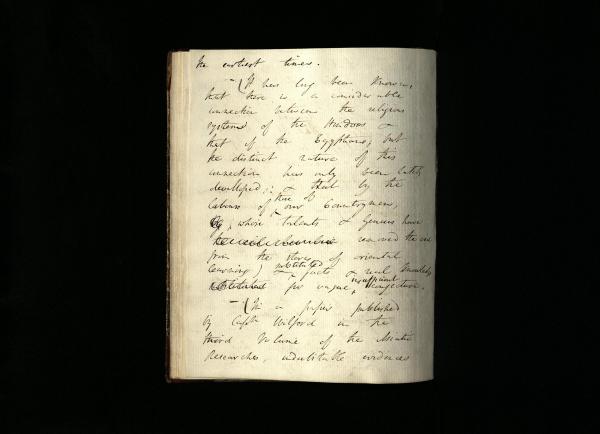 the earliest times.
— (It has long been known,
that there is a considerable
connection between the religious
systems of the Hindoos &
that of the Egyptians; but
the distinct nature of this
connection has only been lately
developed; & that by the
labours of those of our Countrymen,
whose talents & Genius have
removed the
from the stores of oriental
learning) & substituted facts & real knowledge
for vague & insufficient conjecture.
— (In a paper published
by Captn Wilford in the
third Volume of the Asiatic
Researches, indubitable evidences